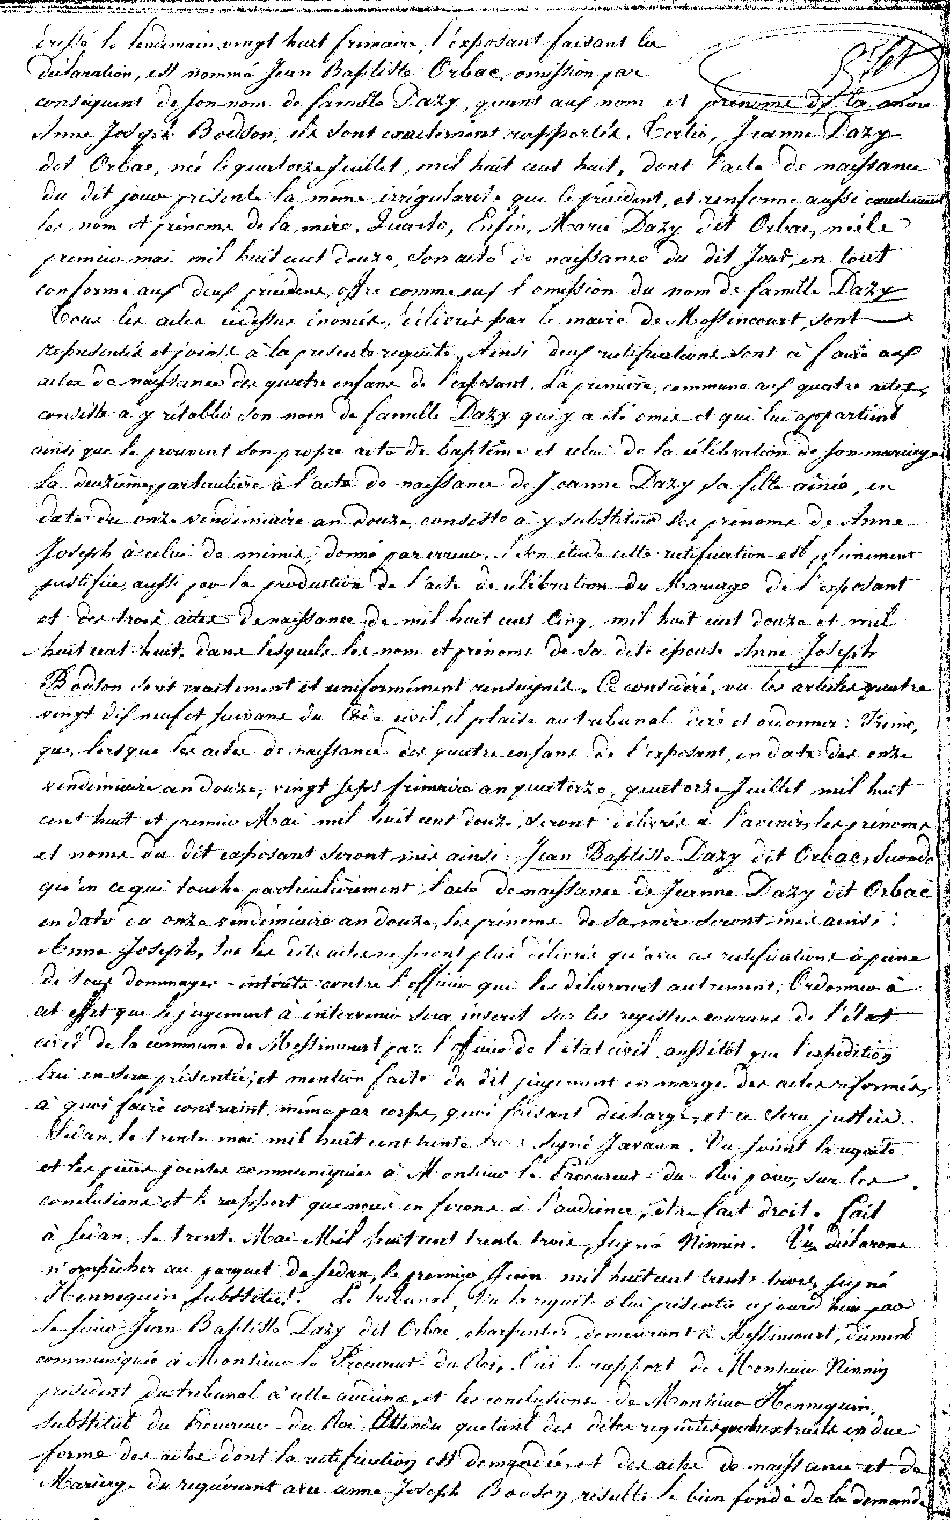 dressé le lendemain vingt huit frimaire, l'exposant faisant la
déclaration, est nommé Jean Baptiste Orbac, omission par
conséquent de son nom de famille Dazy, quant aux nom et prénoms de la mère
Anne Joseph Bodson, ils sont exactement rapportés. Tertio, Jeanne Dazy
dit Orbac, née le quatorze Juillet, mil huit cent huit, dont l'acte de naissance
du dit jour présente la même irrégularité que le précédent, et renferme aussi exactement
les nom et prénoms de la mère. Quarto, Enfin, Marie Dazy dit Orbac, née le
premier mai mil huit cent douze, son acte de naissance du dit Jour, en tout
conforme aux deux précédens, offre comme eux l'omission du nom de famille Dazy
Tous les actes cidessus énoncés, délivrés par le maire de Messincourt, sont
représentés et joints à la présente requête. Ainsi deux rectifications sont à faire aux
actes de naissance des quatre enfans de l'exposant. La première, commune aux quatre actes,
consiste à y rétablir son nom de famille Dazy qui y a été omis et qui lui appartient
ainsi que le prouvent son propre acte de baptême et celui de la célébration de son mariage.
La deuxième, particulière à l'acte de naissance de Jeanne Dazy, sa fille ainée, en
date du onze vendémiaire an douze, consiste à y substituer les prénoms de Anne
Joseph à celui de mimie, donné par erreur. cette rectification est pleinement
justifiée aussi par la production de l'acte de célébration du Mariage de l'exposant
et des trois actes de naissance de mil huit cent cinq, mil huit cent douze et mil
huit cent huit, dans lesquels les nom et prénoms de sa dite épouse Anne Joseph
Bodson sont exactement et uniformément renseignés. Ce considéré, vu les articles quatre
vingt dix neuf et suivans du Code civil, il plaise au tribunal dire et ordonner: Primo,
que, lorsque les actes de naissance des quatre enfans de l'exposant, en date des onze
vendémiaire an douze, vingt sept frimaire an quatorze, quatorze Juillet mil huit
cent huit et premier Mai mil huit cent douze, seront délivrés à l'avenir, les prénoms
et noms du dit exposant seront mis ainsi: Jean Baptiste Dazy dit Orbac, Secondo
qu'en ce qui touche particulièrement l'acte de naissance de Jeanne Dazy dit Orbac
en date du onze vendémiaire an douze, les prénoms de sa mère seront mis ainsi:
Anne Joseph, que les dits actes ne seront plus délivrés qu'avec ces rectifications à peine
de tous dommages intérêts contre l'officier qui les délivreroit autrement; Ordonner à
cet effet que le jugement à intervenir sera inscrit sur les registres courans de l'état
civil de la commune de Messincourt par l'officier de l'état civil, aussitôt que l'expédition
lui en sera présentée, et mention faite du dit jugement en marge des actes réformés,
à quoi faire contraint même par corps, quoi faisant déchargé, et ce sera justice.
Sedan, le trente mai mil huit cent trente trois signé Javaux. Vu soient la requête
et les pièces jointes communiquées à Monsieur le Procureur du Roi pour, sur les
conclusions et le rapport que nous en ferons à l'audience, être fait droit. Fait
à Sedan, le trente Mai Mil huit cent trente trois, signé Ninnin. Vu, déclarons
n'empêcher au parquet de Sedan, le premier Juin mil huit cent trente trois, signé
Hennequin, substitut. Le tribunal, Vu la requête à lui présentée aujourd'hui par
le sieur Jean Baptiste Dazy dit Orbac, charpentier demeurant à Messincourt, dûment
communiquée à Monsieur le Procureur du Roi, Ouï le rapport de Monsieur Ninnin
président du tribunal à cette audience, et les conclusions de Monsieur Hennequin,
substitut du Procureur du Roi Attendu que tant des dites requêtes extraits en due
forme des actes dont la rectification est demandée et des actes de naissance et de
Mariage du requérant avec anne Joseph Bodson, résulte le bien fondé de la demande